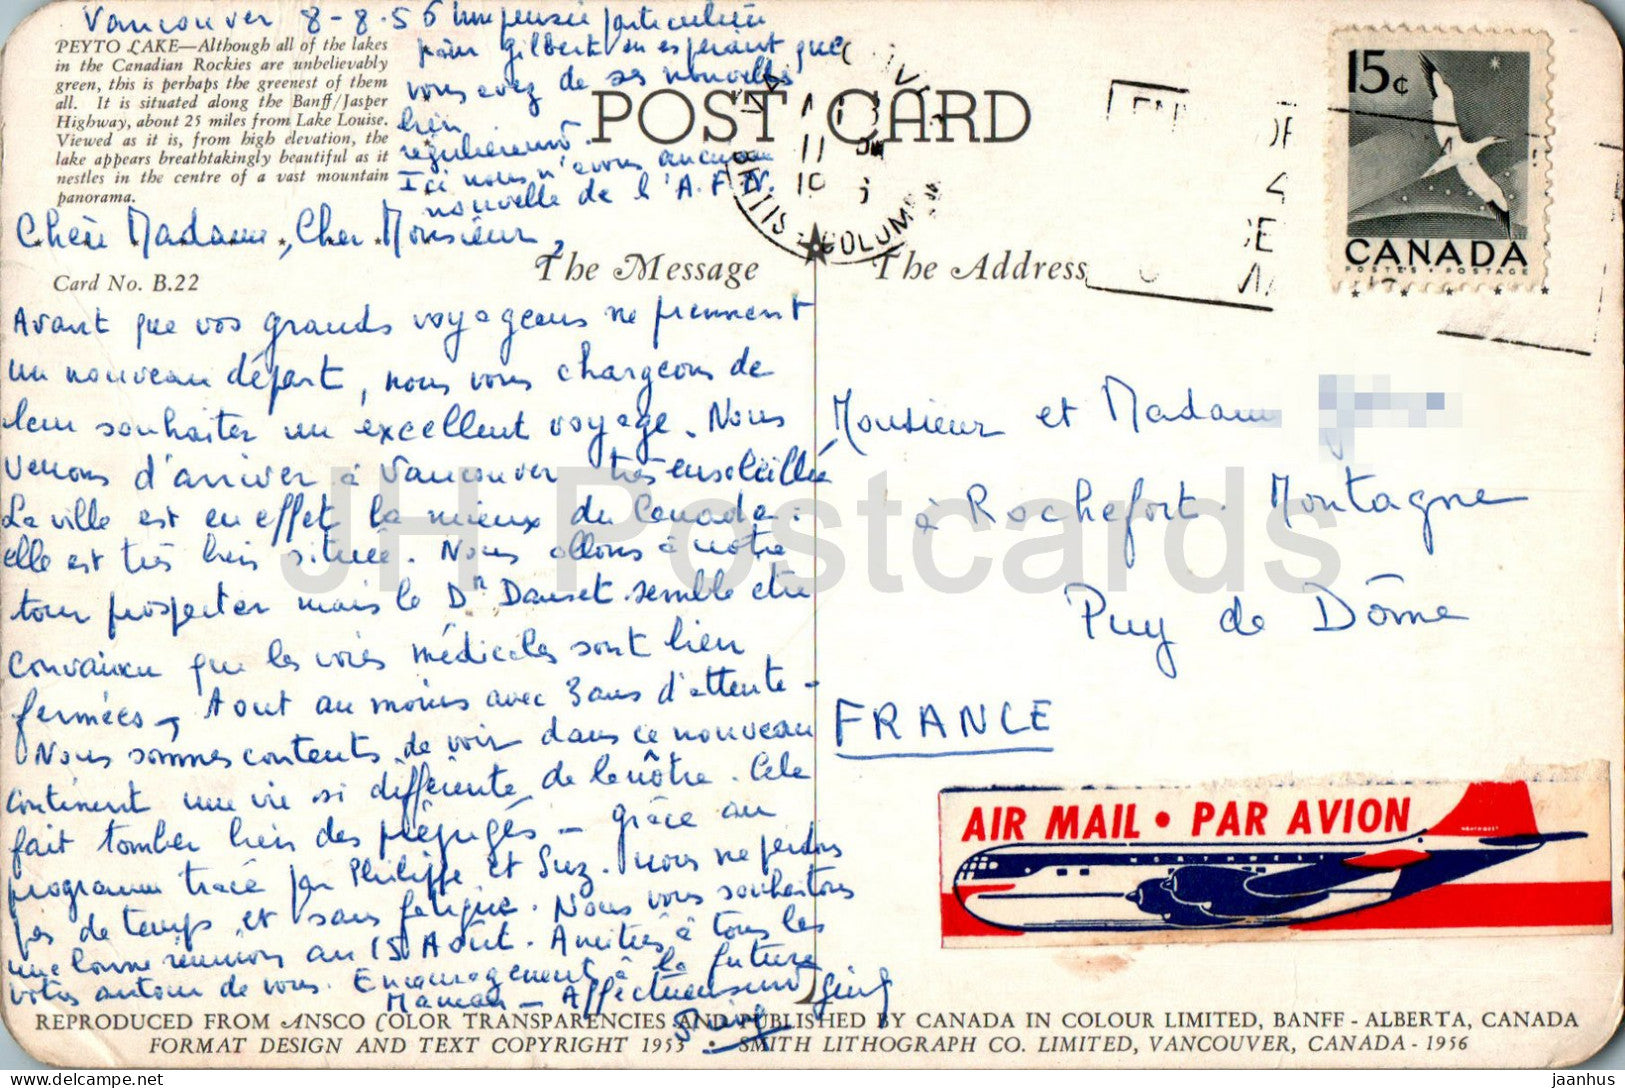 Vancouver 8-8.56
une pensée particulière
pour Gilbert en espérant que
vous avez de ses nouvelles
bien
régulièrement.
Ici nous n'avons aucune
nouvelle de l'A.F.N.
PEYTO LAKE—Although all of the lakes
in the Canadian Rockies are unbelievably
green, this is perhaps the greenest of them
all. It is situated along the Banff/Jasper
Highway, about 25 miles from Lake Louise.
Viewed as it is, from high elevation, the
lake appears breathtakingly beautiful as it
nestles in the centre of a vast mountain
panorama.
POST CARD
Chère Madame, Cher Monsieur,
Card No. B.22
The Message
The Address
Avant que vos grands voyageurs ne prennent
un nouveau départ, nous vous chargeons de
leur souhaiter un excellent voyage. Nous
venons d'arriver à Vancouver très ensoleillée
La ville est en effet la mieux du Canada:
elle est très bien située. Nous allons à notre
tour prospecter mais le Dr Dauset semble être
convaincu que les voies médicales sont bien
fermées, tout au moins avec 3 ans d'attente-
Nous sommes contents de voir dans ce nouveau
continent une vie si différente de la nôtre. Cela
fait tomber bien des préjugés - grâce au
programme tracé par Philippe et Suz. nous ne perdons
pas de temps, et sans fatigue. Nous vous souhaitons
une bonne réunion au 15 Août. Amitiés à tous les
vôtres autour de vous. Encouragement à la future
Maman - Affectueusement
15¢
CANADA
POSTES · POSTAGE
COLUMB
Monsieur et Madame
à Rochefort. Montagne
Puy de Dôme
FRANCE
AIR MAIL • PAR AVION
NORTHWEST
JH Postcards
REPRODUCED FROM ANSCO COLOR TRANSPARENCIES AND PUBLISHED BY CANADA IN COLOUR LIMITED, BANFF - ALBERTA, CANADA
FORMAT DESIGN AND TEXT COPYRIGHT 1953 • SMITH LITHOGRAPH CO. LIMITED, VANCOUVER, CANADA - 1956
jaanhus
delcampe.net